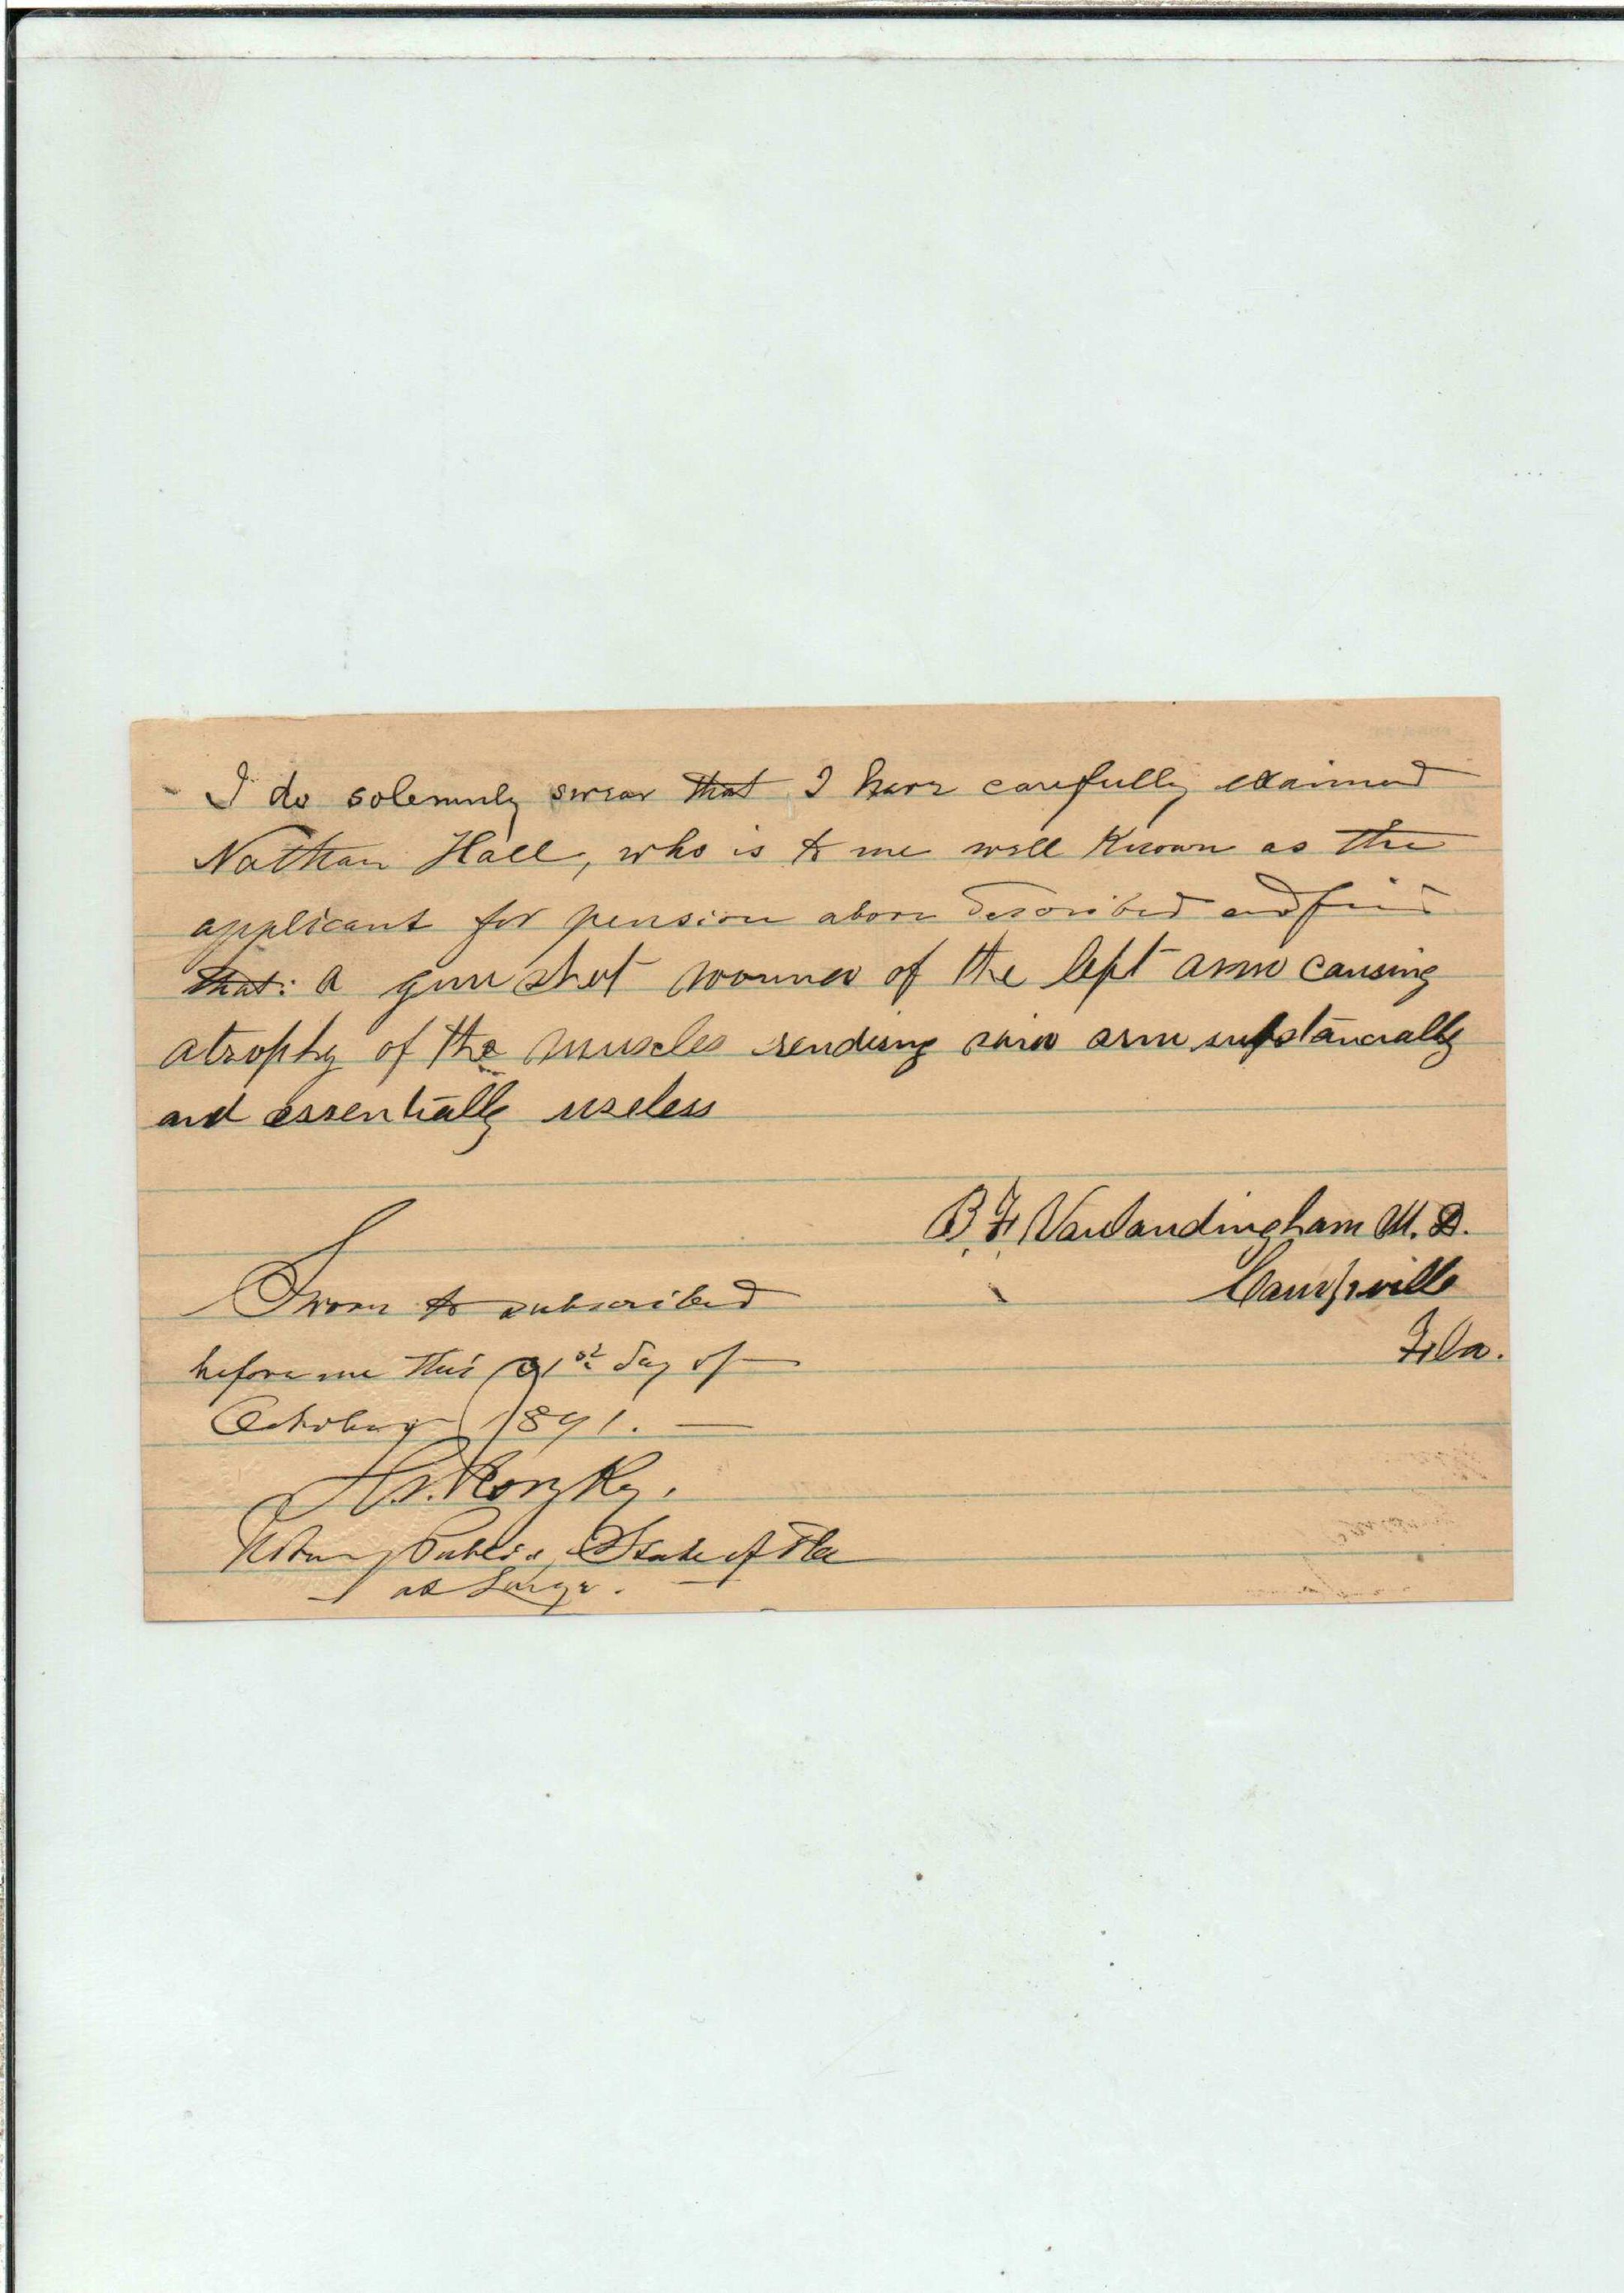 I do solemnly swear that I have carefully examined
Nathan Hall, who is to me well known as the
applicant for pension above described and find
that: a gun shot wound of the left arm causing
atrophy of the muscles rending said arm substancially
and essentially useless
B. F. Vanlandingham M. D.
Campville
Fla.
Sworn to subscribed
before me this 21st day of
October 1891.
Notary Public, State of Fla
at Large.